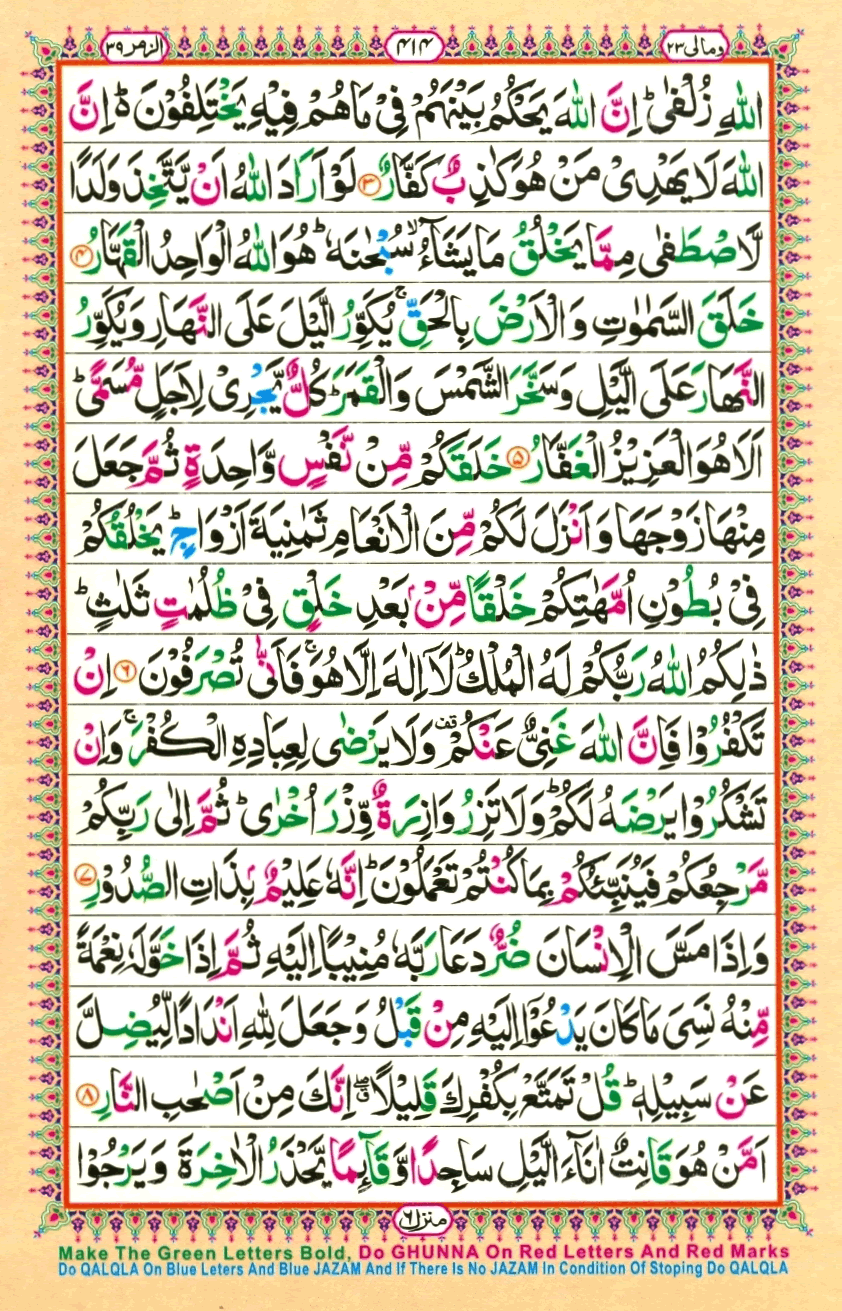 الزمر ٣٩
٤١٤
ومالی ٢٣
اللّٰهِ زُلْفٰىؕ اِنَّ اللّٰهَ يَحْكُمُ بَيْنَهُمْ فِىْ مَا هُمْ فِيْهِ يَخْتَلِفُوْنَ ؕ اِنَّ
اللّٰهَ لَا يَهْدِىْ مَنْ هُوَ كٰذِبٌ كَفَّارٌ ﴿٣﴾ لَوْ اَرَادَ اللّٰهُ اَنْ يَّتَّخِذَ وَلَدًا
لَّاصْطَفٰى مِمَّا يَخْلُقُ مَا يَشَآءُ ۙ سُبْحٰنَهٗ ؕ هُوَ اللّٰهُ الْوَاحِدُ الْقَهَّارُ ﴿٤﴾
خَلَقَ السَّمٰوٰتِ وَ الْاَرْضَ بِالْحَقِّ ۚ يُكَوِّرُ الَّيْلَ عَلَى النَّهَارِ وَيُكَوِّرُ
النَّهَارَ عَلَى الَّيْلِ وَسَخَّرَ الشَّمْسَ وَالْقَمَرَ ؕ كُلٌّ يَّجْرِىْ لِاَجَلٍ مُّسَمًّى ؕ
اَلَا هُوَ الْعَزِيْزُ الْغَفَّارُ ﴿٥﴾ خَلَقَكُمْ مِّنْ نَّفْسٍ وَّاحِدَةٍ ثُمَّ جَعَلَ
مِنْهَا زَوْجَهَا وَ اَنْزَلَ لَكُمْ مِّنَ الْاَنْعَامِ ثَمٰنِيَةَ اَزْوَاجٍ ؕ يَخْلُقُكُمْ
فِىْ بُطُوْنِ اُمَّهٰتِكُمْ خَلْقًا مِّنْۢ بَعْدِ خَلْقٍ فِىْ ظُلُمٰتٍ ثَلٰثٍ ؕ
ذٰلِكُمُ اللّٰهُ رَبُّكُمْ لَهُ الْمُلْكُ ؕ لَاۤ اِلٰهَ اِلَّا هُوَ ۚ فَاَنّٰى تُصْرَفُوْنَ ﴿٦﴾ اِنْ
تَكْفُرُوْا فَاِنَّ اللّٰهَ غَنِىٌّ عَنْكُمْ قف وَلَا يَرْضٰى لِعِبَادِهِ الْكُفْرَ ۚ وَاِنْ
تَشْكُرُوْا يَرْضَهُ لَكُمْ ؕ وَلَا تَزِرُ وَازِرَةٌ وِّزْرَ اُخْرٰى ؕ ثُمَّ اِلٰى رَبِّكُمْ
مَّرْجِعُكُمْ فَيُنَبِّئُكُمْ بِمَا كُنْتُمْ تَعْمَلُوْنَ ؕ اِنَّهٗ عَلِيْمٌۢ بِذَاتِ الصُّدُوْرِ ﴿٧﴾
وَاِذَا مَسَّ الْاِنْسَانَ ضُرٌّ دَعَا رَبَّهٗ مُنِيْبًا اِلَيْهِ ثُمَّ اِذَا خَوَّلَهٗ نِعْمَةً
مِّنْهُ نَسِىَ مَا كَانَ يَدْعُوْۤا اِلَيْهِ مِنْ قَبْلُ وَ جَعَلَ لِلّٰهِ اَنْدَادًا لِّيُضِلَّ
عَنْ سَبِيْلِهٖ ؕ قُلْ تَمَتَّعْ بِكُفْرِكَ قَلِيْلًا ۖ اِنَّكَ مِنْ اَصْحٰبِ النَّارِ ﴿٨﴾
اَمَّنْ هُوَ قَانِتٌ اٰنَآءَ الَّيْلِ سَاجِدًا وَّ قَآئِمًا يَّحْذَرُ الْاٰخِرَةَ وَ يَرْجُوْا
منزل ٦
Make The Green Letters Bold, Do GHUNNA On Red Letters And Red Marks
Do QALQLA On Blue Leters And Blue JAZAM And If There Is No JAZAM In Condition Of Stoping Do QALQLA